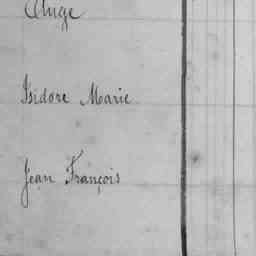 Ange
Isidore Marie
Jean François